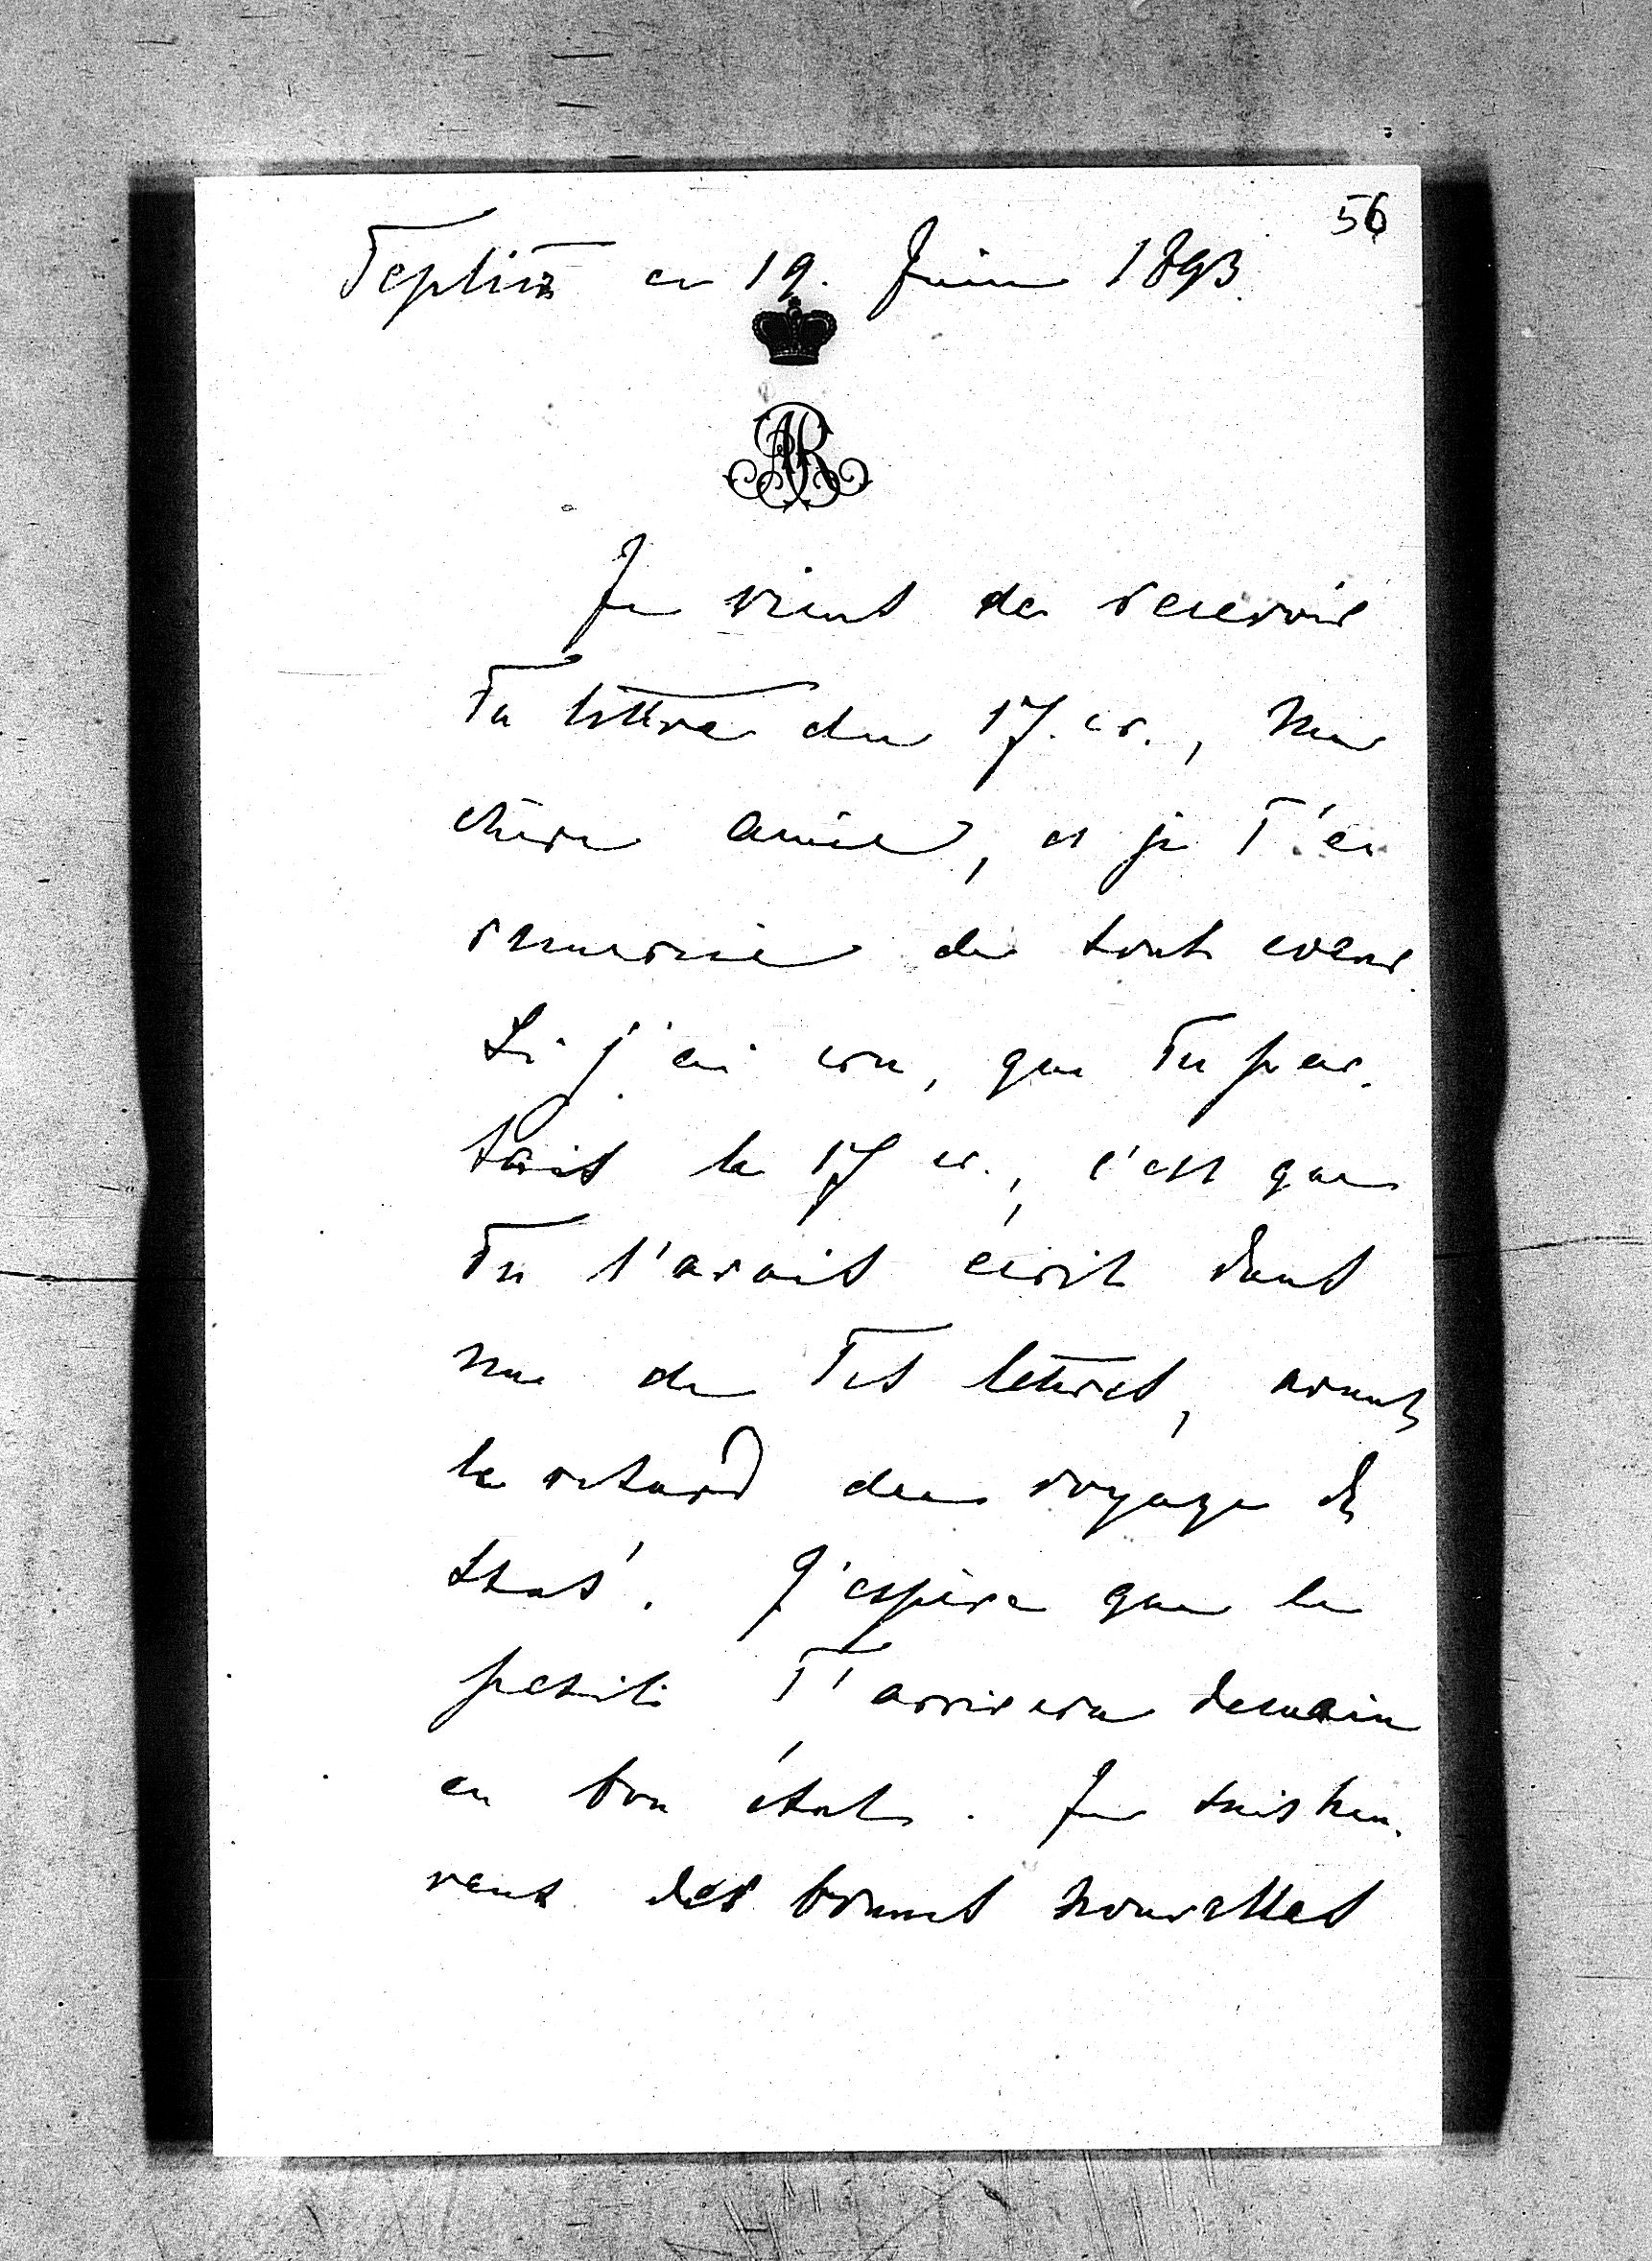 56
Teplitz ce 19. Juin 1893.
AR
Je viens de recevoir
Ta lettre du 17. cr., ma
chère amie, et je T'en
remercie de tout coeur.
Si j'ai cru, que Tu par-
tais le 17 cr., c'est que
Tu l'avais écrit dans
une de Tes lettres, avant
le retard du voyage de
Stas'. J'espère que la
petite T'arrivera demain
en bon état. Je suis heu-
reux des bonnes nouvelles